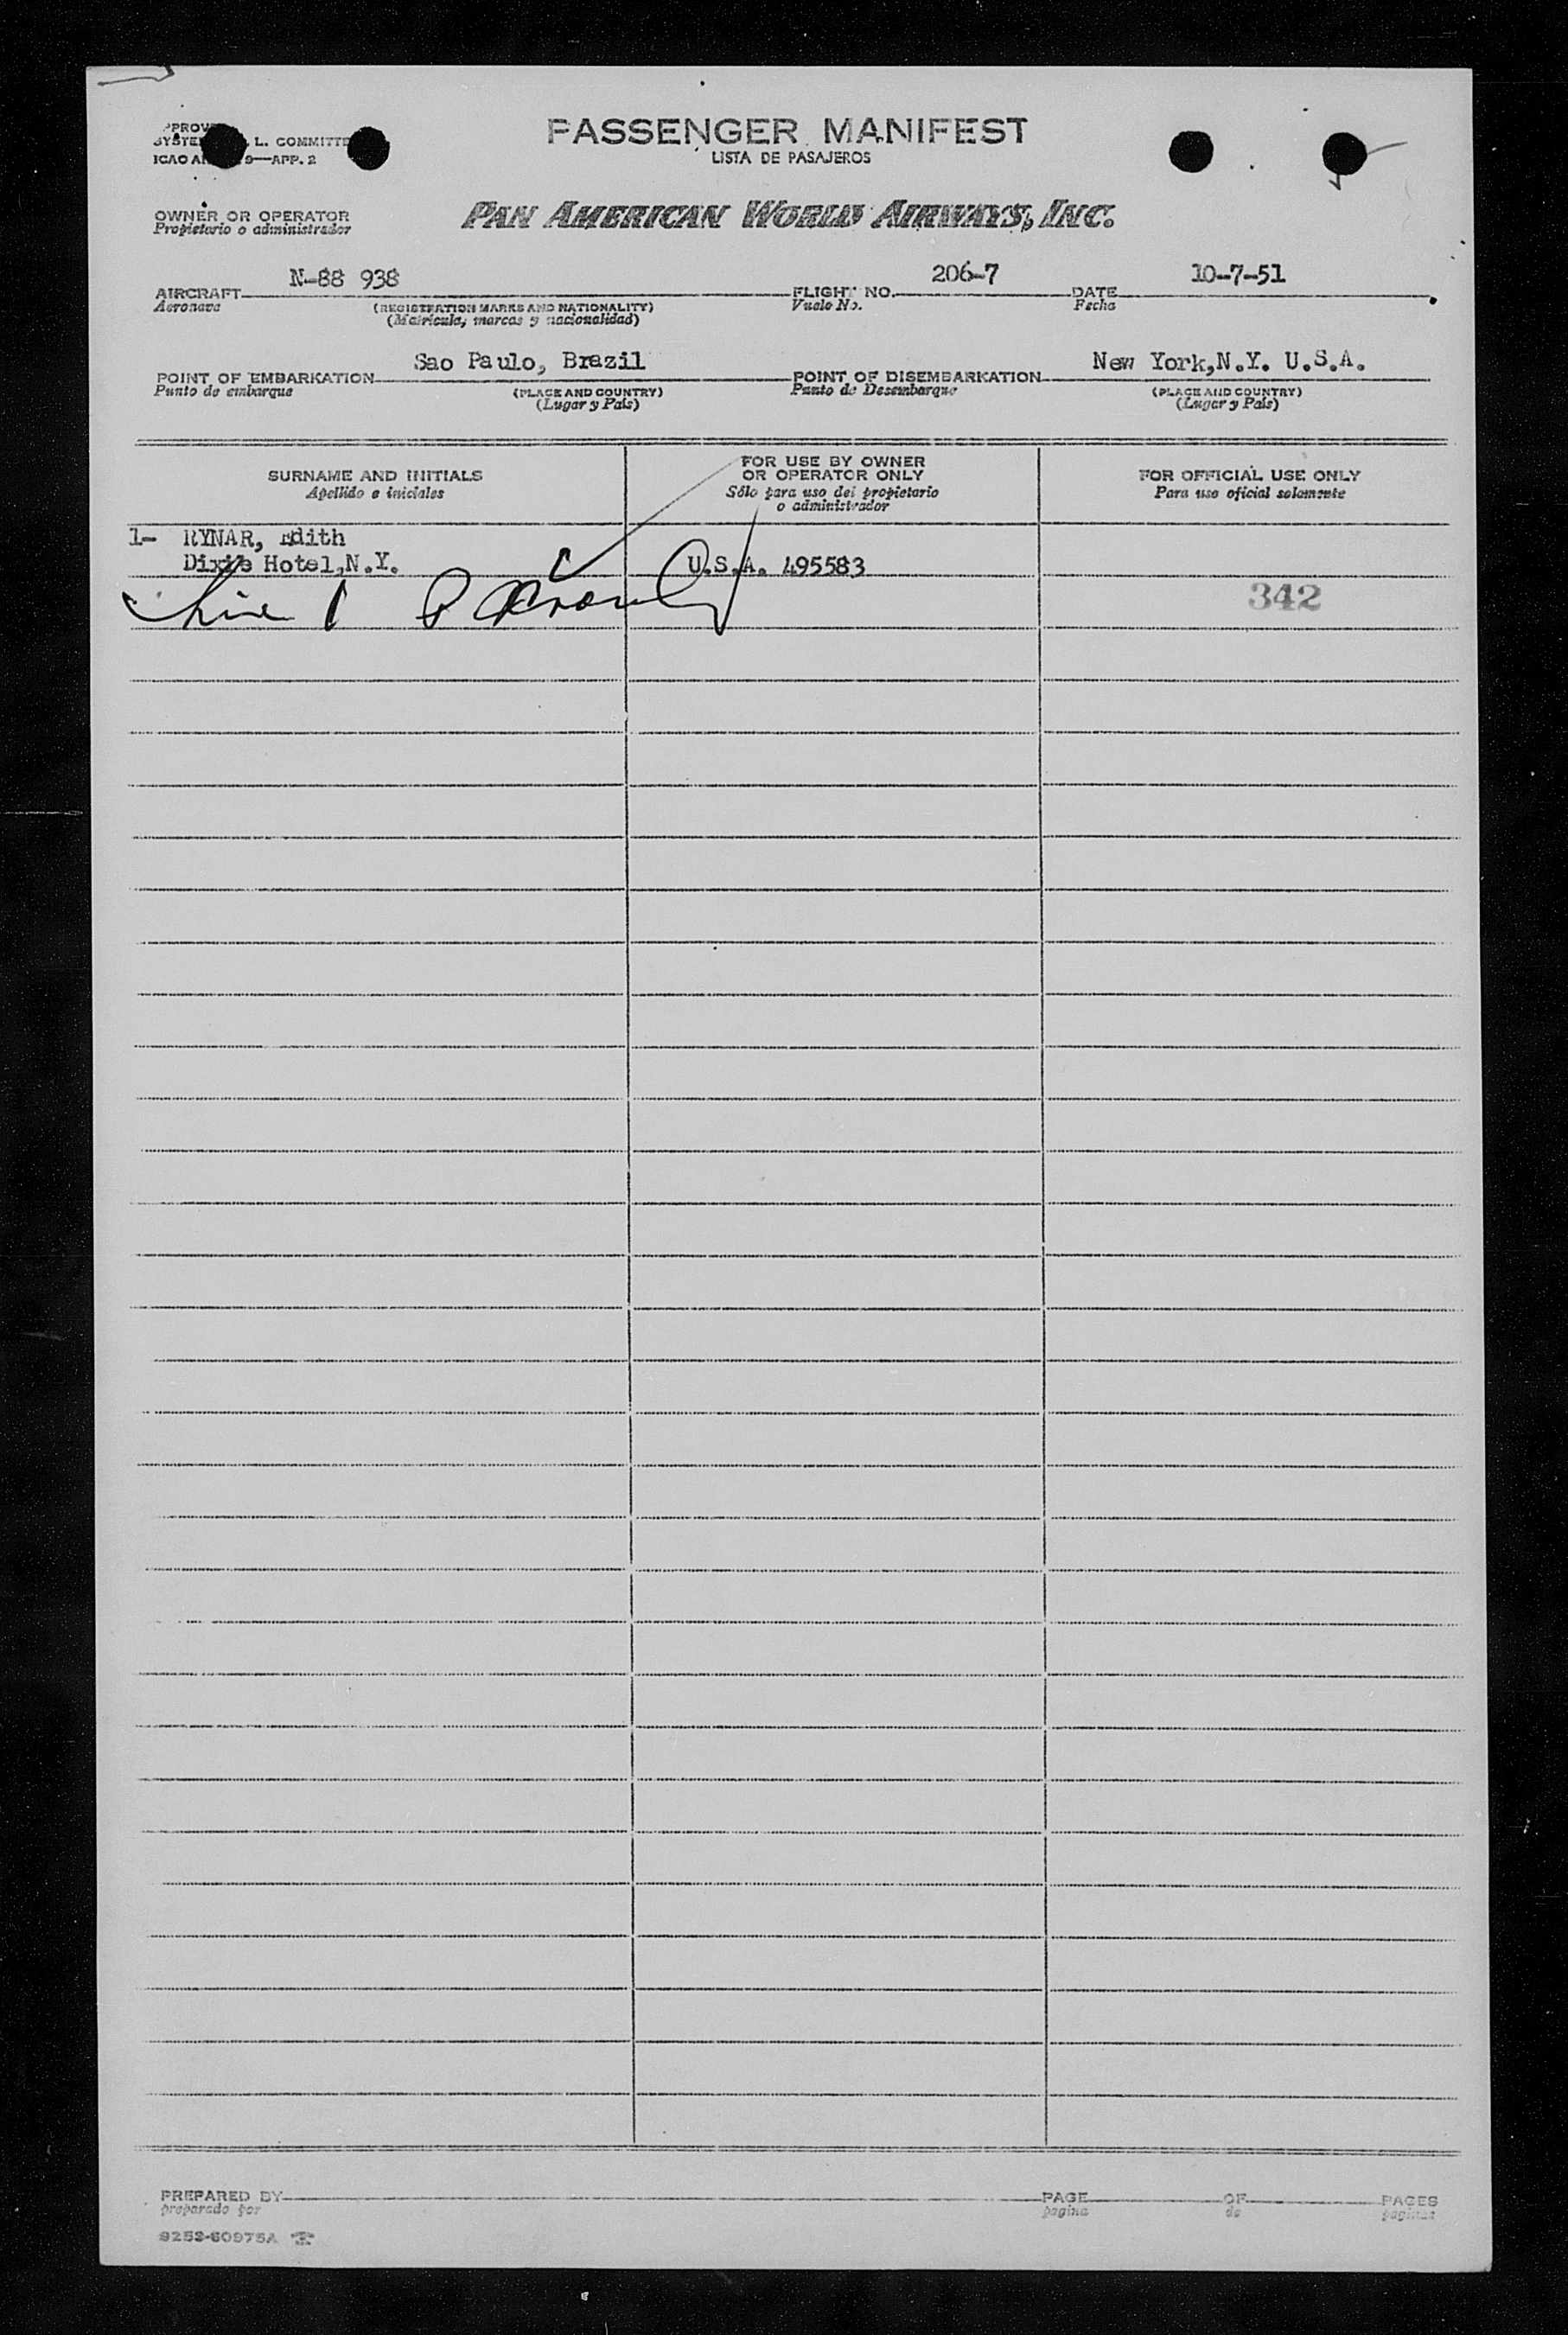 PASSENGER MANIFEST
LISTA DE PASAJEROS
L. COMMITTE
9—APP. 2
OWNER OR OPERATOR
Propietario o administrador
PAN AMERICAN WORLD AIRWAYS, INC.
AIRCRAFT N-88 938 FLIGHT NO. 206-7 DATE 10-7-51
Aeronave (REGISTRATION MARKS AND NATIONALITY) Vuelo No. Fecha
(Matricula, marcas y nacionalidad)
POINT OF EMBARKATION Sao Paulo, Brazil POINT OF DISEMBARKATION New York,N.Y. U.S.A.
Punto de embarque (PLACE AND COUNTRY) Punto de Desembarque (PLACE AND COUNTRY)
(Lugar y País) (Lugar y País)
SURNAME AND INITIALS
Apellido e iniciales
FOR USE BY OWNER
OR OPERATOR ONLY
Sólo para uso del propietario
o administrador
FOR OFFICIAL USE ONLY
Para uso oficial solamente
1- RYNAR, Edith
Dixie Hotel,N.Y. U.S.A. 495583
342
PREPARED BY PAGE OF PAGES
preparado por pagina de paginas
9252-60975A